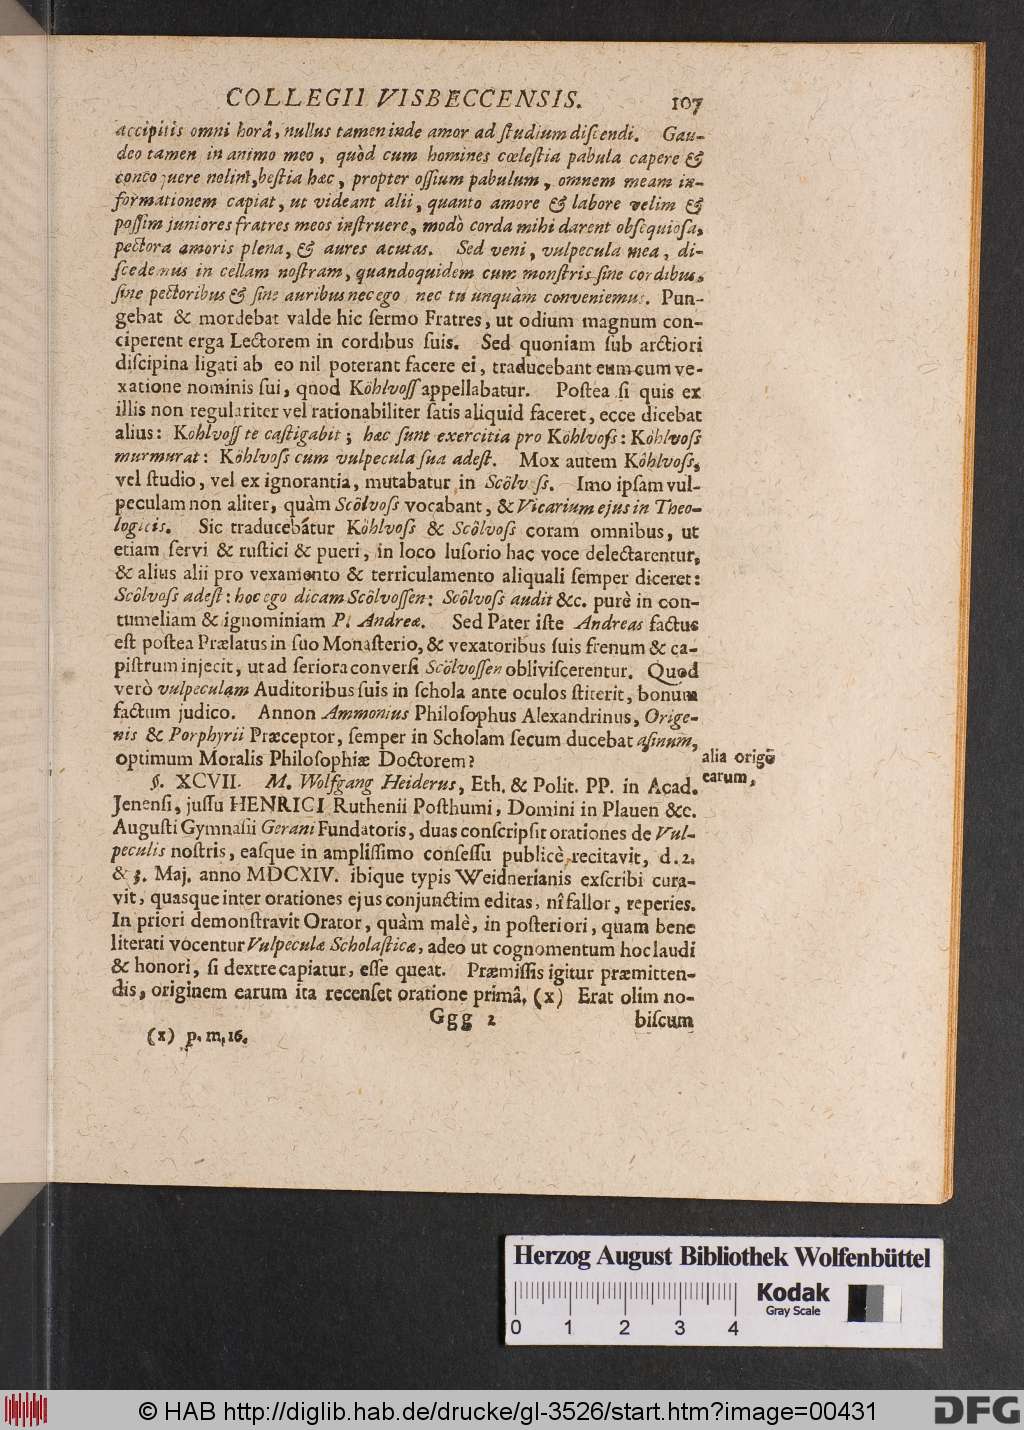 COLLEGII VISBECCENSIS. 107
accipitis omni horâ, nullus tamen inde amor ad ſtudium diſcendi. Gau-
deo tamen in animo meo, quòd cum homines cœleſtia pabula capere &
concoquere nolint, beſtia hæc, propter oſſium pabulum, omnem meam in-
formationem capiat, ut videant alii, quanto amore & labore velim &
poſſim juniores fratres meos inſtruere, modò corda mihi darent obſequioſa,
pectora amoris plena, & aures acutas. Sed veni, vulpecula mea, di-
ſcedemus in cellam noſtram, quandoquidem cum monſtris ſine cordibus,
ſine pectoribus & ſine auribus nec ego nec tu unquàm conveniemus. Pun-
gebat & mordebat valde hic ſermo Fratres, ut odium magnum con-
ciperent erga Lectorem in cordibus ſuis. Sed quoniam ſub arctiori
diſcipina ligati ab eo nil poterant facere ei, traducebant eum cum ve-
xatione nominis ſui, quod Köhlvoſſ appellabatur. Poſtea ſi quis ex
illis non regulariter vel rationabiliter ſatis aliquid faceret, ecce dicebat
alius: Kohlvoſſ te caſtigabit; hæc ſunt exercitia pro Köhlvoſs: Köhlvoſs
murmurat: Köhlvoſs cum vulpecula ſua adeſt. Mox autem Köhlvoſs,
vel ſtudio, vel ex ignorantia, mutabatur in Scölvoſs. Imo ipſam vul-
peculam non aliter, quàm Scölvoſs vocabant, & Vicarium ejus in Theo-
logicis. Sic traducebátur Köhlvoſs & Scôlvoſs coram omnibus, ut
etiam ſervi & ruſtici & pueri, in loco luſorio hac voce delectarentur,
& alius alii pro vexamento & terriculamento aliquali ſemper diceret:
Scôlvoſs adeſt: hoc ego dicam Scôlvoſſen: Scôlvoſs audit &c. purè in con-
tumeliam & ignominiam P. Andreæ. Sed Pater iſte Andreas factus
eſt poſtea Prælatus in ſuo Monaſterio, & vexatoribus ſuis frenum & ca-
piſtrum injecit, ut ad ſeriora converſi Scölvoſſen obliviſcerentur. Quod
verò vulpeculam Auditoribus ſuis in ſchola ante oculos ſtiterit, bonum
factum judico. Annon Ammonius Philoſophus Alexandrinus, Orige-
nis & Porphyrii Præceptor, ſemper in Scholam ſecum ducebat aſinum,
optimum Moralis Philoſophiæ Doctorem?
alia origo
earum,
§. XCVII. M. Wolfgang Heiderus, Eth. & Polit. PP. in Acad.
Jenenſi, juſſu HENRICI Ruthenii Poſthumi, Domini in Plauen &c.
Auguſti Gymnaſii Gerani Fundatoris, duas conſcripſit orationes de Vul-
peculis noſtris, eaſque in ampliſſimo conſeſſu publicè recitavit, d. 2.
& 3. Maj. anno MDCXIV. ibique typis Weidnerianis exſcribi cura-
vit, quasque inter orationes ejus conjunctim editas, nî fallor, reperies.
In priori demonſtravit Orator, quàm malè, in poſteriori, quam bene
literati vocentur Vulpeculæ Scholaſticæ, adeo ut cognomentum hoc laudi
& honori, ſi dextre capiatur, eſſe queat. Præmiſſis igitur præmitten-
dis, originem earum ita recenſet oratione primâ, (x) Erat olim no-
Ggg 2 biſcum
(x) p. m. 16.
Herzog August Bibliothek Wolfenbüttel
Kodak
Gray Scale
0 1 2 3 4
© HAB http://diglib.hab.de/drucke/gl-3526/start.htm?image=00431
DFG